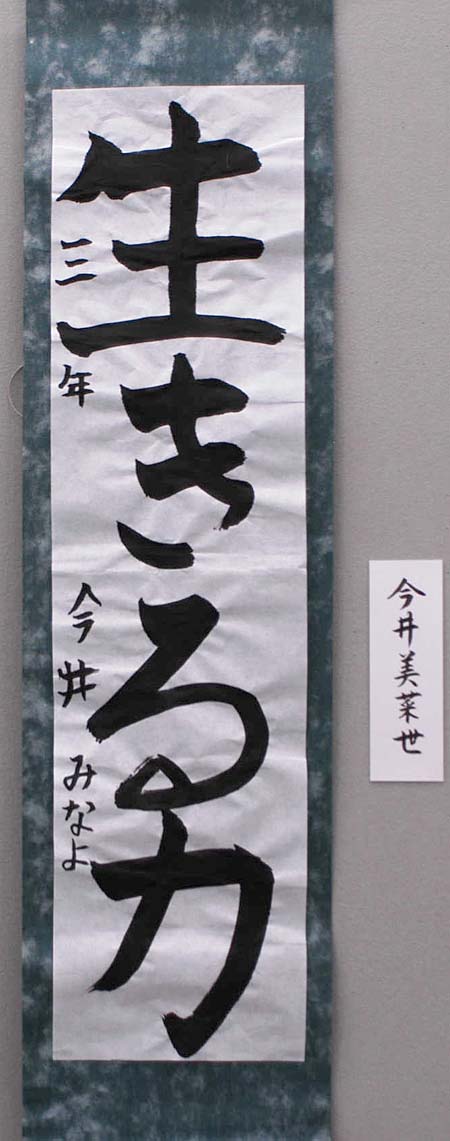 生きる力
三年 今井 みなよ
今井美菜世